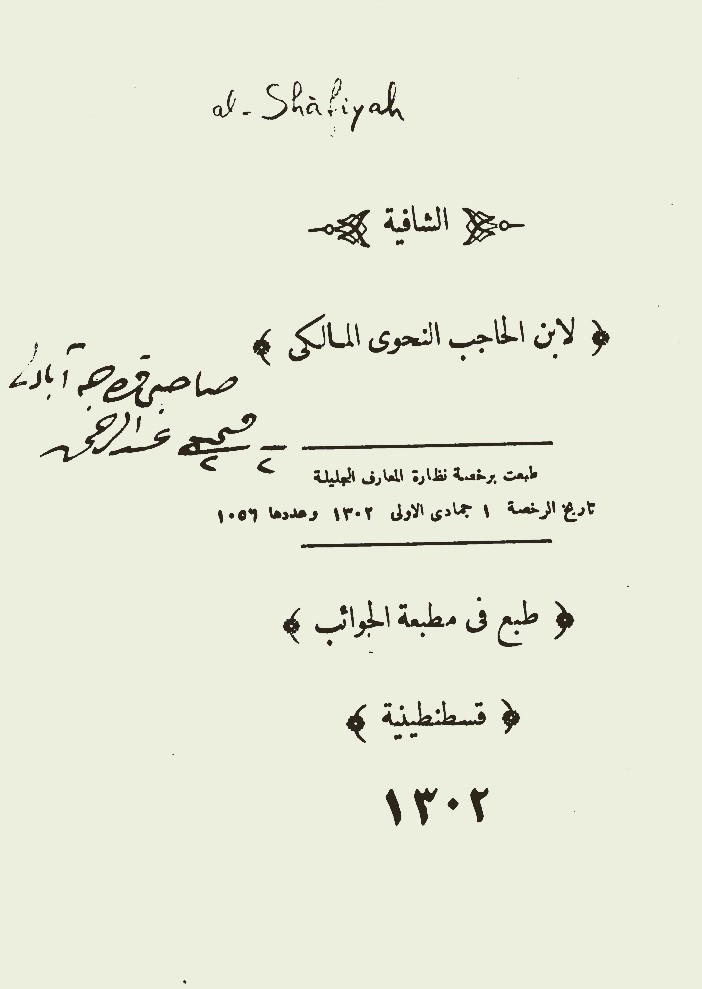 al-Shāfiyah
الشافية
﴿ لابن الحاجب النحوى المالكى ﴾
صاحبى
طبعت برخصة نظارة المعارف الجليلة
تاريخ الرخصة ١ جمادى الاولى ١٣٠٢ وعددها ١٠٥٦
﴿ طبع فى مطبعة الجوائب ﴾
﴿ قسطنطينية ﴾
١٣٠٢